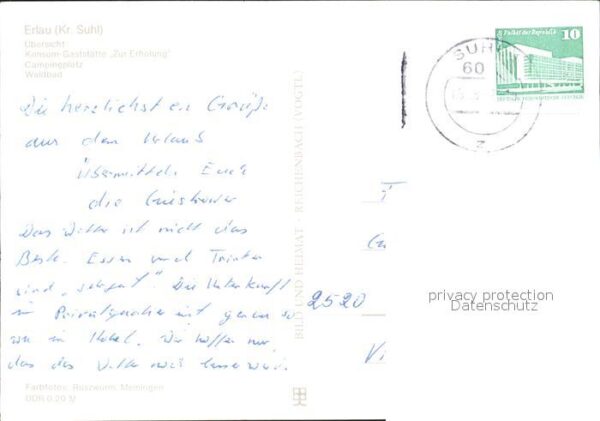 Erlau (Kr. Suhl)
Übersicht
Konsum-Gaststätte „Zur Erholung"
Campingplatz
Waldbad
Die herzlichsten Grüße
aus dem Urlaub
übermitteln Euch
die
Das Wetter ist nicht das
Beste. Essen und Trinken
sind „sehr gut". Die Unterkunft
im Privatquartier ist genau so
wie im Hotel. Wir hoffen nur,
das das Wetter noch besser wird.
Farbfotos: Ruszwurm, Memingen
DDR 0,20
BILD UND HEIMAT · REICHENBACH (VOGTL)
SUHL
60
2
Palast der Republik
10
2520
privacy protection
Datenschutz